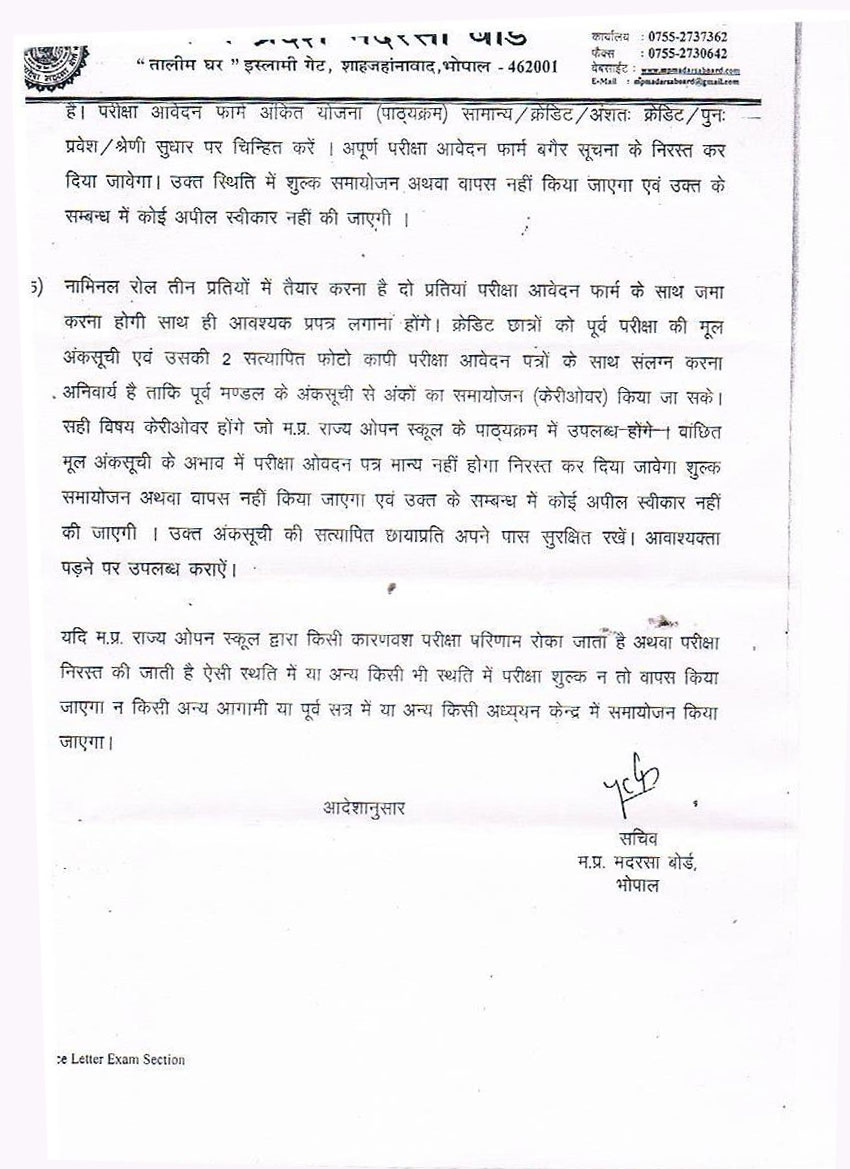 प्रदेश मदरसा बोर्ड
"तालीम घर" इस्लामी गेट, शाहजहांनावाद,भोपाल - 462001
कार्यालय : 0755-2737362
फैक्स : 0755-2730642
वेबसाईट : www.mpmadarsaboard.com
E-Mail : mpmadarsaboard@gmail.com
है। परीक्षा आवेदन फार्म अंकित योजना (पाठ्यक्रम) सामान्य/क्रेडिट/अंशतः क्रेडिट/पुनः
प्रवेश/श्रेणी सुधार पर चिन्हित करें । अपूर्ण परीक्षा आवेदन फार्म बगैर सूचना के निरस्त कर
दिया जावेगा। उक्त स्थिति में शुल्क समायोजन अथवा वापस नहीं किया जाएगा एवं उक्त के
सम्बन्ध में कोई अपील स्वीकार नहीं की जाएगी ।
नामिनल रोल तीन प्रतियों में तैयार करना है दो प्रतियां परीक्षा आवेदन फार्म के साथ जमा
करना होगी साथ ही आवश्यक प्रपत्र लगाना होंगे। क्रेडिट छात्रों को पूर्व परीक्षा की मूल
अंकसूची एवं उसकी 2 सत्यापित फोटो कापी परीक्षा आवेदन पत्रों के साथ संलग्न करना
अनिवार्य है ताकि पूर्व मण्डल के अंकसूची से अंकों का समायोजन (केरीओवर) किया जा सके।
सही विषय केरीओवर होंगे जो म.प्र. राज्य ओपन स्कूल के पाठ्यक्रम में उपलब्ध होंगे । वांछित
मूल अंकसूची के अभाव में परीक्षा ओवदन पत्र मान्य नहीं होगा निरस्त कर दिया जावेगा शुल्क
समायोजन अथवा वापस नहीं किया जाएगा एवं उक्त के सम्बन्ध में कोई अपील स्वीकार नहीं
की जाएगी । उक्त अंकसूची की सत्यापित छायाप्रति अपने पास सुरक्षित रखें। आवाश्यक्ता
पड़ने पर उपलब्ध कराऐं।
यदि म.प्र. राज्य ओपन स्कूल द्वारा किसी कारणवश परीक्षा परिणाम रोका जाता है अथवा परीक्षा
निरस्त की जाती है ऐसी स्थति में या अन्य किसी भी स्थति में परीक्षा शुल्क न तो वापस किया
जाएगा न किसी अन्य आगामी या पूर्व सत्र में या अन्य किसी अध्ययन केन्द्र में समायोजन किया
जाएगा।
आदेशानुसार
सचिव
म.प्र. मदरसा बोर्ड,
भोपाल
ce Letter Exam Section